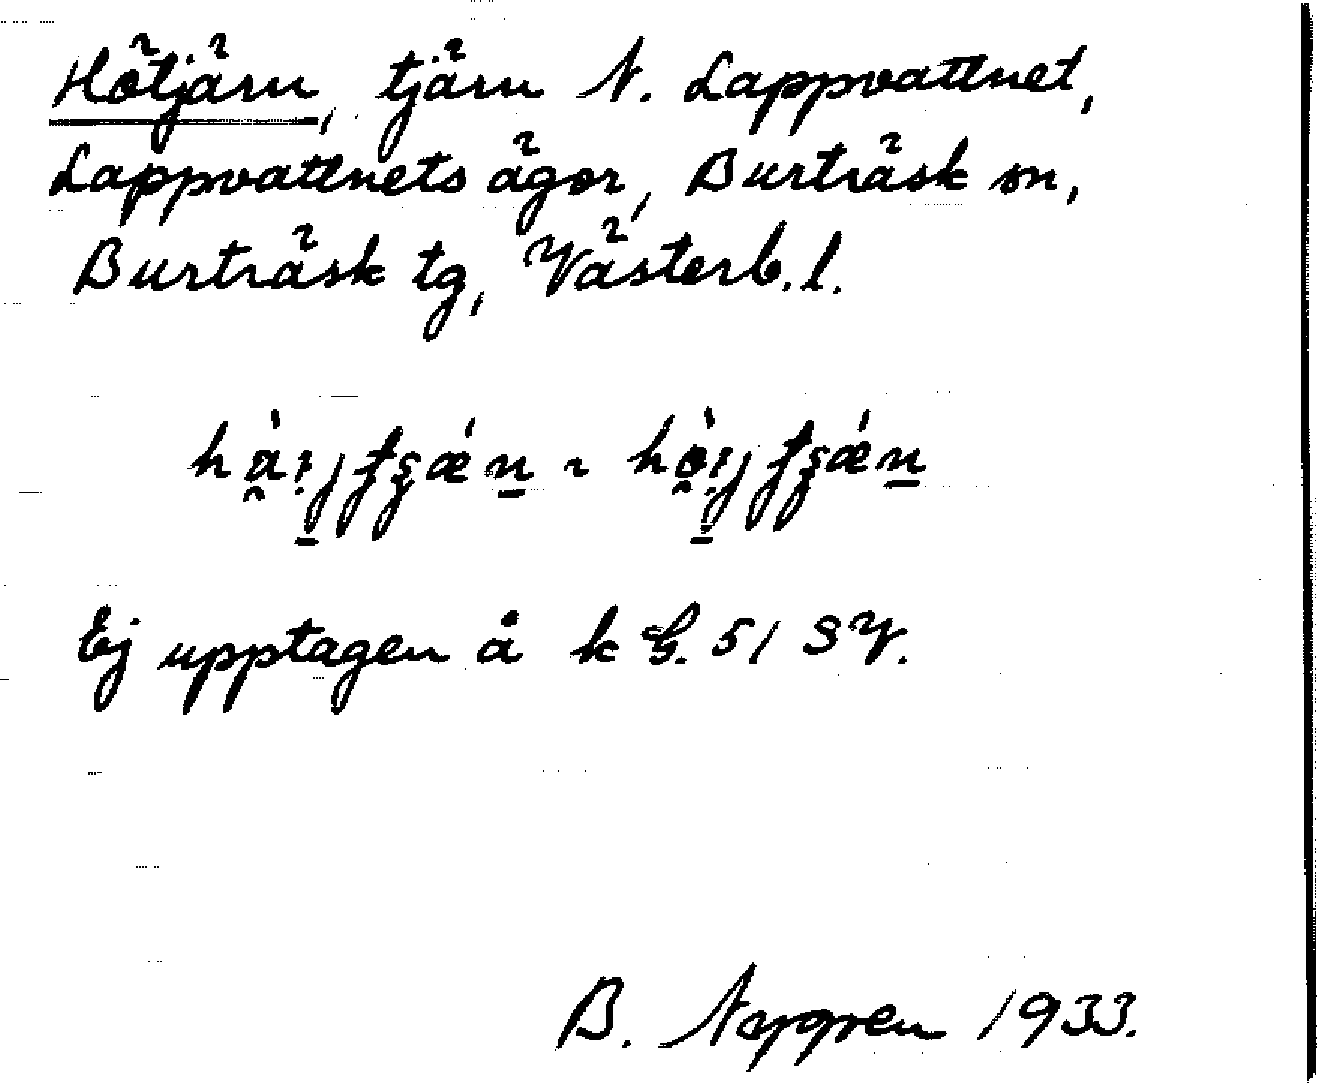 Hötjärn, tjärn N. Lappvattnet,
Lappvattnets ägor, Burträsk sn,
Burträsk tg, Västerb. l.
Ej upptagen å k G. 51 SV.
B. Nygren 1933.